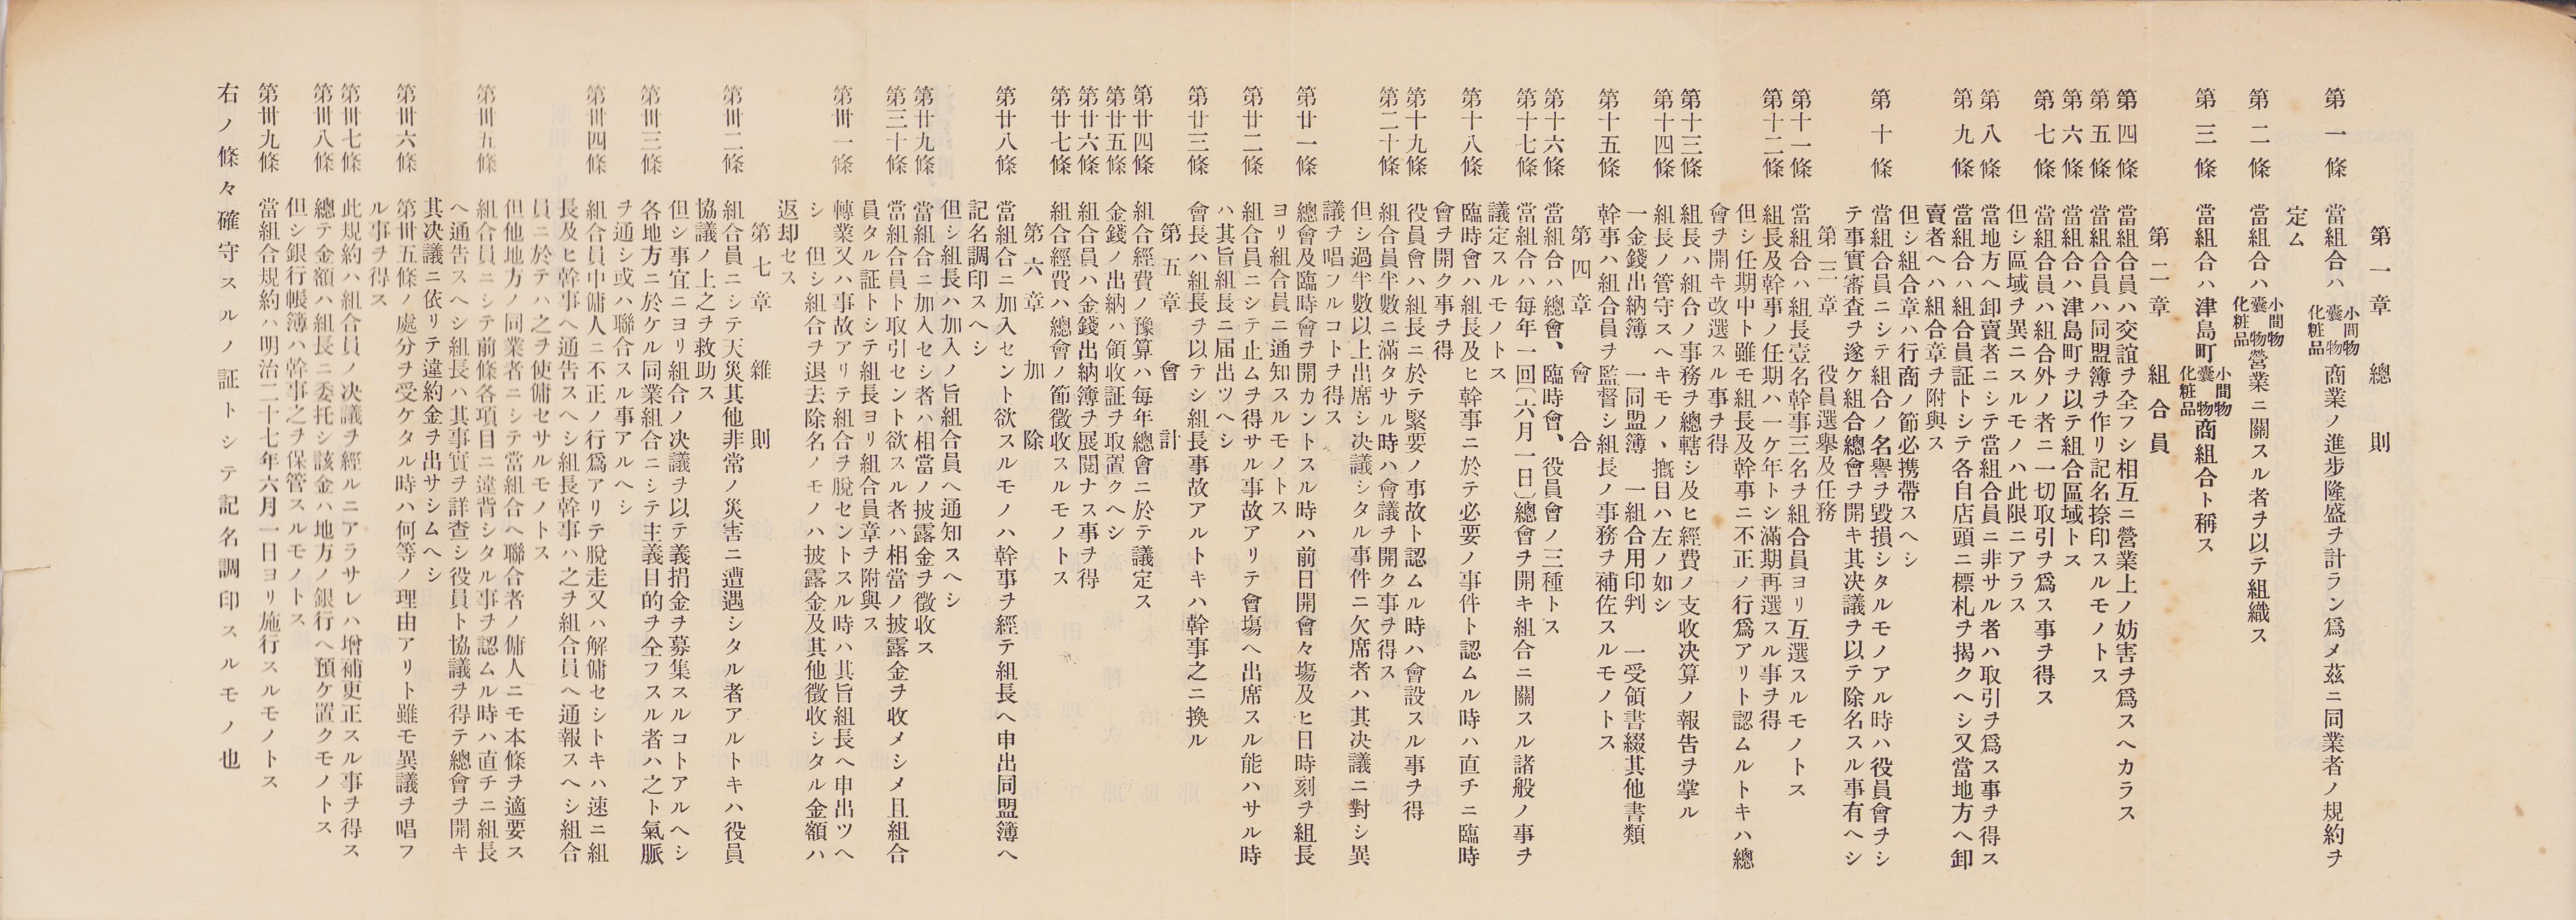 第一章　總則
第一條　當組合ハ小間物囊物化粧品商業ノ進步隆盛ヲ計ラン爲メ茲ニ同業者ノ規約ヲ
定ム
第二條　當組合ハ小間物囊物化粧品營業ニ關スル者ヲ以テ組織ス
第三條　當組合ハ津島町小間物囊物化粧品商組合ト稱ス
第二章　組合員
第四條　當組合員ハ交誼ヲ全フシ相互ニ營業上ノ妨害ヲ爲スヘカラス
第五條　當組合員ハ同盟簿ヲ作リ記名捺印スルモノトス
第六條　當組合ハ津島町ヲ以テ組合區域トス
第七條　當組合員ハ組合外ノ者ニ一切取引ヲ爲ス事ヲ得ス
但シ區域ヲ異ニスルモノハ此限ニアラス
第八條　當地方ヘ卸賣者ニシテ當組合員ニ非サル者ハ取引ヲ爲ス事ヲ得ス
第九條　當組合ハ組合員証トシテ各自店頭ニ標札ヲ揭クヘシ又當地方ヘ卸
賣者ヘハ組合章ヲ附與ス
但シ組合章ハ行商ノ節必携帶スヘシ
第十條　當組合員ニシテ組合ノ名譽ヲ毀損シタルモノアル時ハ役員會ヲシ
テ事實審査ヲ遂ケ組合總會ヲ開キ其决議ヲ以テ除名スル事有ヘシ
第三章　役員選擧及任務
第十一條　當組合ハ組長壹名幹事三名ヲ組合員ヨリ互選スルモノトス
第十二條　組長及幹事ノ任期ハ一ケ年トシ滿期再選スル事ヲ得
但シ任期中ト雖モ組長及幹事ニ不正ノ行爲アリト認ムルトキハ總
會ヲ開キ改選スル事ヲ得
第十三條　組長ハ組合ノ事務ヲ總轄シ及ヒ經費ノ支收决算ノ報告ヲ掌ル
第十四條　組長ノ管守スヘキモノヽ摡目ハ左ノ如シ
一金錢出納簿　一同盟簿　一組合用印判　一受領書綴其他書類
第十五條　幹事ハ組合員ヲ監督シ組長ノ事務ヲ補佐スルモノトス
第四章　會合
第十六條　當組合ハ總會、臨時會、役員會ノ三種トス
第十七條　當組合ハ每年一回〔六月一日〕總會ヲ開キ組合ニ關スル諸般ノ事ヲ
議定スルモノトス
第十八條　臨時會ハ組長及ヒ幹事ニ於テ必要ノ事件ト認ムル時ハ直チニ臨時
會ヲ開ク事ヲ得
第十九條　役員會ハ組長ニ於テ緊要ノ事故ト認ムル時ハ會設スル事ヲ得
第二十條　組合員半數ニ滿タサル時ハ會議ヲ開ク事ヲ得ス
但シ過半數以上出席シ决議シタル事件ニ欠席者ハ其决議ニ對シ異
議ヲ唱フルコトヲ得ス
第廿一條　總會及臨時會ヲ開カントスル時ハ前日開會々塲及ヒ日時刻ヲ組長
ヨリ組合員ニ通知スルモノトス
第廿二條　組合員ニシテ止ムヲ得サル事故アリテ會塲ヘ出席スル能ハサル時
ハ其旨組長ニ届出ツヘシ
第廿三條　會長ハ組長ヲ以テシ組長事故アルトキハ幹事之ニ換ル
第五章　會計
第廿四條　組合經費ノ豫算ハ每年總會ニ於テ議定ス
第廿五條　金錢ノ出納ハ領收証ヲ取置クヘシ
第廿六條　組合員ハ金錢出納簿ヲ展閱ナス事ヲ得
第廿七條　組合經費ハ總會ノ節徵收スルモノトス
第六章　加除
第廿八條　當組合ニ加入セント欲スルモノハ幹事ヲ經テ組長ヘ申出同盟簿ヘ
記名調印スヘシ
但シ組長ハ加入ノ旨組合員ヘ通知スヘシ
第廿九條　當組合ニ加入セシ者ハ相當ノ披露金ヲ徵收ス
第三十條　當組合員ト取引セント欲スル者ハ相當ノ披露金ヲ收メシメ且組合
員タル証トシテ組長ヨリ組合員章ヲ附與ス
第卅一條　轉業又ハ事故アリテ組合ヲ脫セントスル時ハ其旨組長ヘ申出ツヘ
シ　但シ組合ヲ退去除名ノモノハ披露金及其他徵收シタル金額ハ
返却セス
第七章　雜則
第卅二條　組合員ニシテ天災其他非常ノ災害ニ遭遇シタル者アルトキハ役員
協議ノ上之ヲ救助ス
但シ事宜ニヨリ組合ノ决議ヲ以テ義捐金ヲ募集スルコトアルヘシ
第卅三條　各地方ニ於ケル同業組合ニシテ主義目的ヲ全フスル者ハ之ト氣脈
ヲ通シ或ハ聯合スル事アルヘシ
第卅四條　組合員中傭人ニ不正ノ行爲アリテ脫走又ハ解傭セシトキハ速ニ組
長及ヒ幹事ヘ通告スヘシ組長幹事ハ之ヲ組合員ヘ通報スヘシ組合
員ニ於テハ之ヲ使傭セサルモノトス
但他地方ノ同業者ニシテ當組合ヘ聯合者ノ傭人ニモ本條ヲ適要ス
第卅五條　組合員ニシテ前條各項目ニ違背シタル事ヲ認ムル時ハ直チニ組長
ヘ通告スヘシ組長ハ其事實ヲ詳査シ役員ト協議ヲ得テ總會ヲ開キ
其决議ニ依リテ違約金ヲ出サシムヘシ
第卅六條　第卅五條ノ處分ヲ受ケタル時ハ何等ノ理由アリト雖モ異議ヲ唱フ
ル事ヲ得ス
第卅七條　此規約ハ組合員ノ决議ヲ經ルニアラサレハ增補更正スル事ヲ得ス
第卅八條　總テ金額ハ組長ニ委托シ該金ハ地方ノ銀行ヘ預ケ置クモノトス
但シ銀行帳簿ハ幹事之ヲ保管スルモノトス
第卅九條　當組合規約ハ明治二十七年六月一日ヨリ施行スルモノトス
右ノ條々確守スルノ証トシテ記名調印スルモノ也